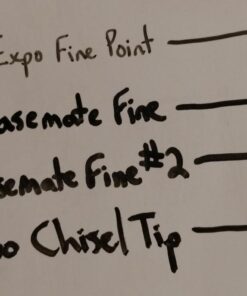 Expo Fine Point
asemate Fine
semate Fine #2
o Chisel Tip